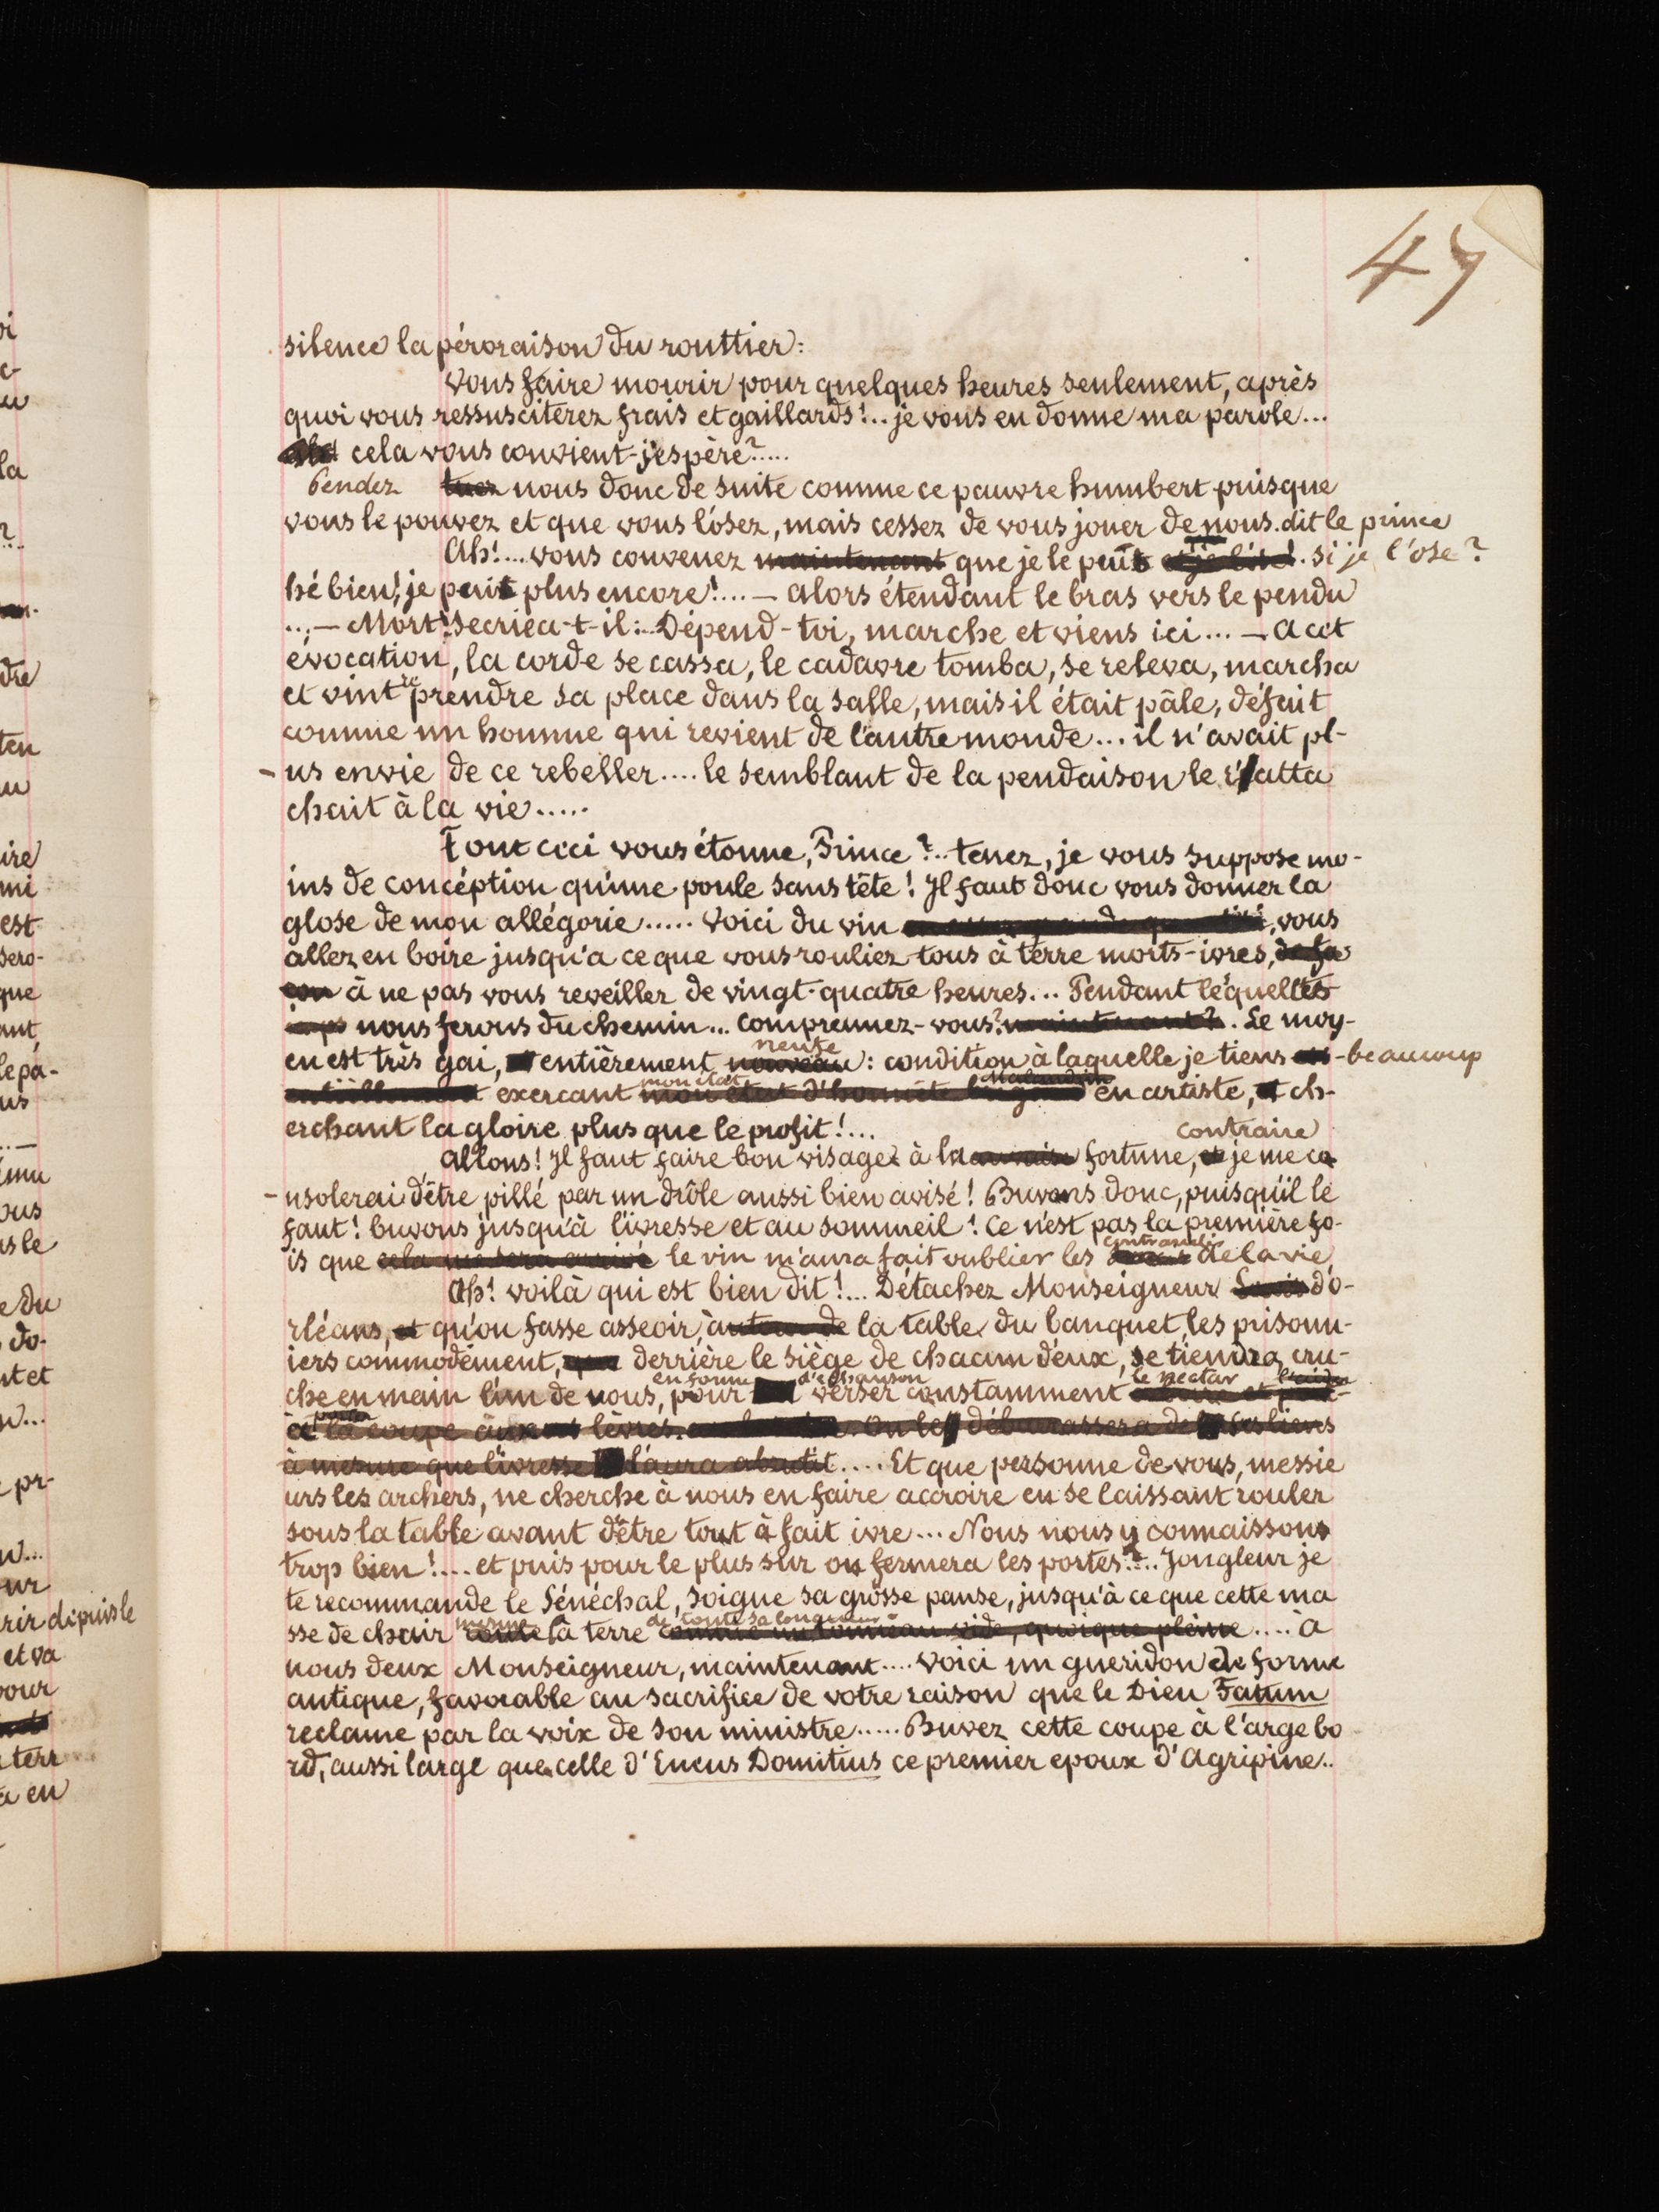 47
silence la péroraison du routtier:
Vous faire mourir pour quelques heures seulement, après
quoi vous ressusciterez frais et gaillards!... je vous en donne ma parole...
cela vous convient-j'espère?.....
Pendez tuez nous donc de suite comme ce pauvre humbert puisque
vous le pouvez et que vous l'osez, mais cessez de vous jouer de nous. dit le prince
Ah!... vous convenez maintenant que je le puis et je l'ose!. si je l'ose?
hé bien! je puis plus encore!... — alors étendant le bras vers le pendu
...— Mort! secriéa-t-il:... Dépend-toi, marche et viens ici... — a cet
évocation, la corde se cassa, le cadavre tomba, se releva, marcha
et vint reprendre sa place dans la salle, mais il était pâle, défait
comme un homme qui revient de l'autre monde... il n'avait pl-
-us envie de ce rebeller.... le semblant de la pendaison le r'atta
chait à la vie.....
Tout ceci vous étonne, Prince?.. tenez, je vous suppose mo-
ins de concéption qu'une poule sans tête! Il faut donc vous donner la
glose de mon allégorie..... Voici du vin en assez grande quantité, vous
allez en boire jusqu'a ce que vous rouliez tous à terre morts-ivres, de fa
çon à ne pas vous reveiller de vingt-quatre heures... Pendant lesquelles
nous ferons du chemin... comprennez-vous? maintenant?. Le moy-
en est très gai, et entièrement neuve nouveau: condition à laquelle je tiens -beaucoup
exercant mon état mon état d'honnête brigand en artiste, et ch-
erchant la gloire plus que le profit!...
contraire
Allons! Il faut faire bon visage à la mauvaise fortune, et je me co
-nsolerai d'être pillé par un drôle aussi bien avisé! Buvons donc, puisqu'il le
faut! buvons jusqu'à l'ivresse et au sommeil! Ce n'est pas la première fo-
is que cela me sera arrivé le vin m'aura fait oublier les de la vie
Ah! voilà qui est bien dit!... Détachez Monseigneur Louis d'o-
rléans, et qu'on fasse asseoir, autour de la table du banquet, les prisonn-
iers commodément, que derrière le siège de chacun d'eux, se tiendra, cru-
che en main l'un de nous, en forme d'echanson pour verser constamment le nectar
la coupe aux lèvres. On le débarassera de ses liens
à mesure que l'ivresse l'aura abrutit.... Et que personne de vous, messie
urs les archers, ne cherche à nous en faire accroire en se laissant rouler
sous la table avant d'être tout à fait ivre... Nous nous y connaissons
trop bien!.... et puis pour le plus sûr on fermera les portes?... Jongleur je
te recommande le Sénéchal, soigne sa grosse panse, jusqu'à ce que cette ma
sse de chair mesure roule la terre de toute sa longueur comme un tonneau vide, quoique pleine.... à
nous deux Monseigneur, maintenant.... Voici un gueridon de forme
antique, favorable au sacrifice de votre raison que le Dieu Fatum
reclame par la voix de son ministre..... Buvez cette coupe à l'arge bo
rd, aussi large que celle d'Eneus Domitius ce premier epoux d'Agripine..